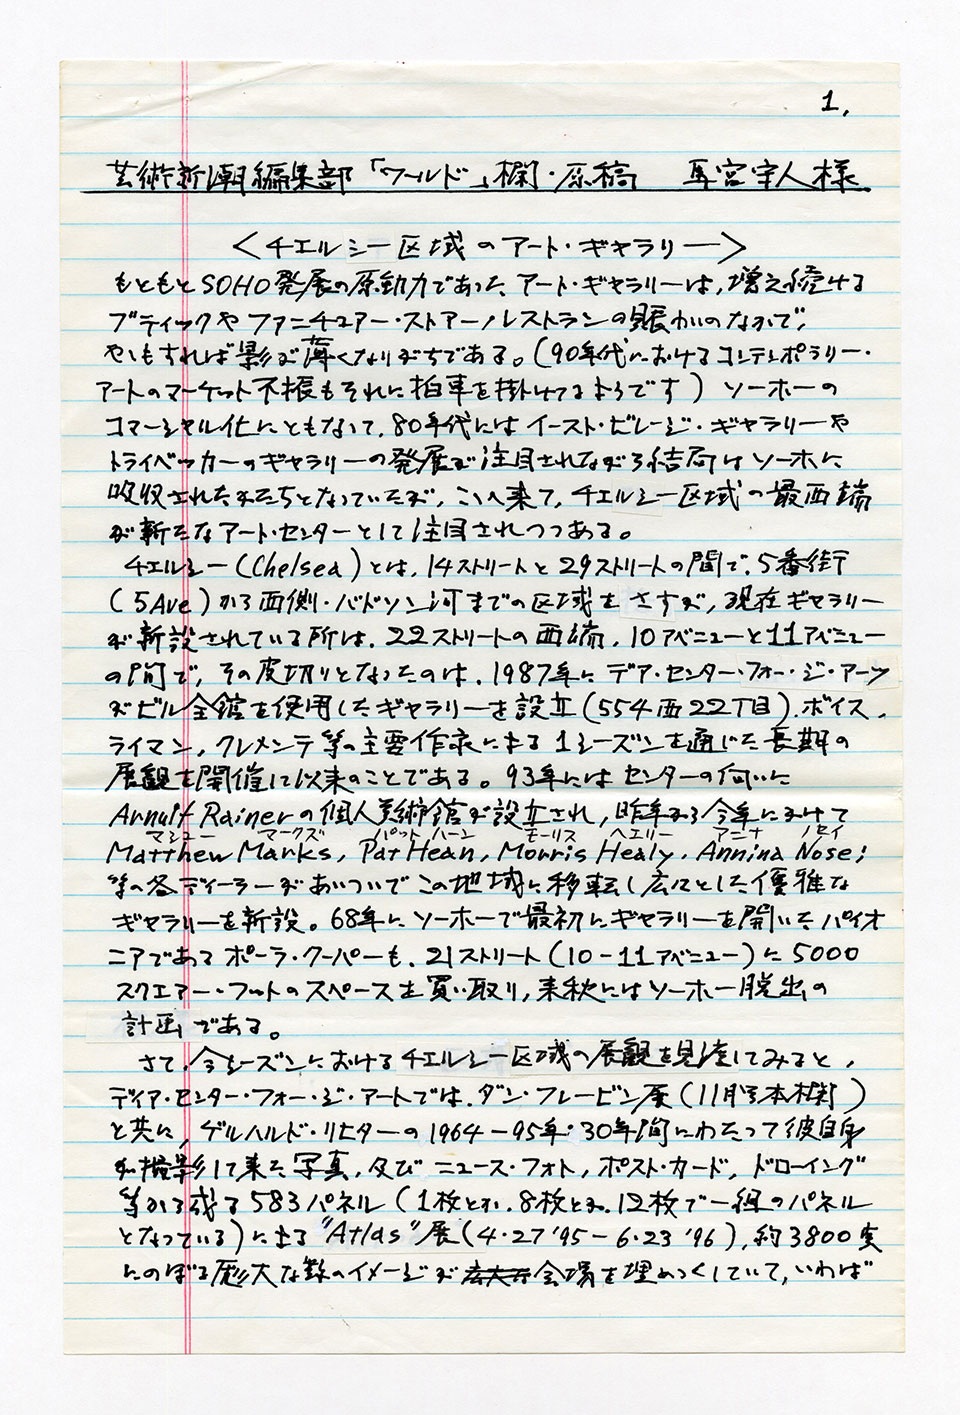 1.
芸術新潮編集部「ワールド」欄・原稿 馬宮守人様
<チエルシー区域のアート・ギャラリー>
もともとSOHO発展の原動力であった アート・ギャラリーは，増え続ける
ブティックや ファニチュアー・ストアー/レストランの賑わいのなかで，
やゝもすれば影が薄くなりがちである。(90年代におけるコンテンポラリー・
アートのマーケット不振もそれに拍車を掛けてるようです) ソーホーの
コマーシャル化にともなって，80年代には イースト・ビレージ・ギャラリーや
トライベッカーのギャラリーの発展が注目されながら結局はソーホに
吸収されたかたちとなっていたが，こゝへ来て，チエルシー区域の最西端
が新たなアート・センターとして注目されつつある。
チエルシー(Chelsea)とは，14ストリートと29ストリートの間で，5番街
(5Ave)から西側・ハドソン河までの区域をさすが，現在ギャラリー
が新設されている所は，22ストリートの西端，10アベニューと11アベニュー
の間で，その皮切りとなったのは，1987年に デア・センター・フォー・ジ・アーツ
がビル全館を使用したギャラリーを設立(554西22丁目)．ボイス，
ライマン，クレメンテ等の主要作家による1シーズンを通じた長期の
展観を開催して以来のことである。93年には センターの向いに
Arnulf Rainerの個人美術館が設立され，昨年から今年にかけて
マシュー マークス パット ハーン モーリス ヘエリー アニナ ノセイ
Matthew Marks, Pat Hean, Morris Healy, Annina Nosei
等の各ディーラーがあいついでこの地域に移転し広々とした優雅な
ギャラリーを新設。68年にソーホーで最初にギャラリーを開いたパイオ
ニアであるポーラ・クーパーも，21ストリート(10-11アベニュー)に5000
スクエアー・フットのスペースを買い取り，来秋にはソーホー脱出の
計画である。
さて，今シーズンにおけるチエルシー区域の展観を見渡してみると，
ディア・センター・フォー・ジ・アートでは，ダン・フレービン展(11月号本欄)
と共に，ゲルハルド・リヒターの1964-95年・30年間にわたって彼自身
が撮影して来た写真，及び ニュース・フォト，ポスト・カード，ドローイング
等から成る583パネル(1枚とか，8枚とか，12枚で一組のパネル
となっている)による"Atlas"展(4・27'95-6・23'96)，約3800点
にのぼる厖大な数のイメージが 広大な 会場を埋めつくしていて，いわば